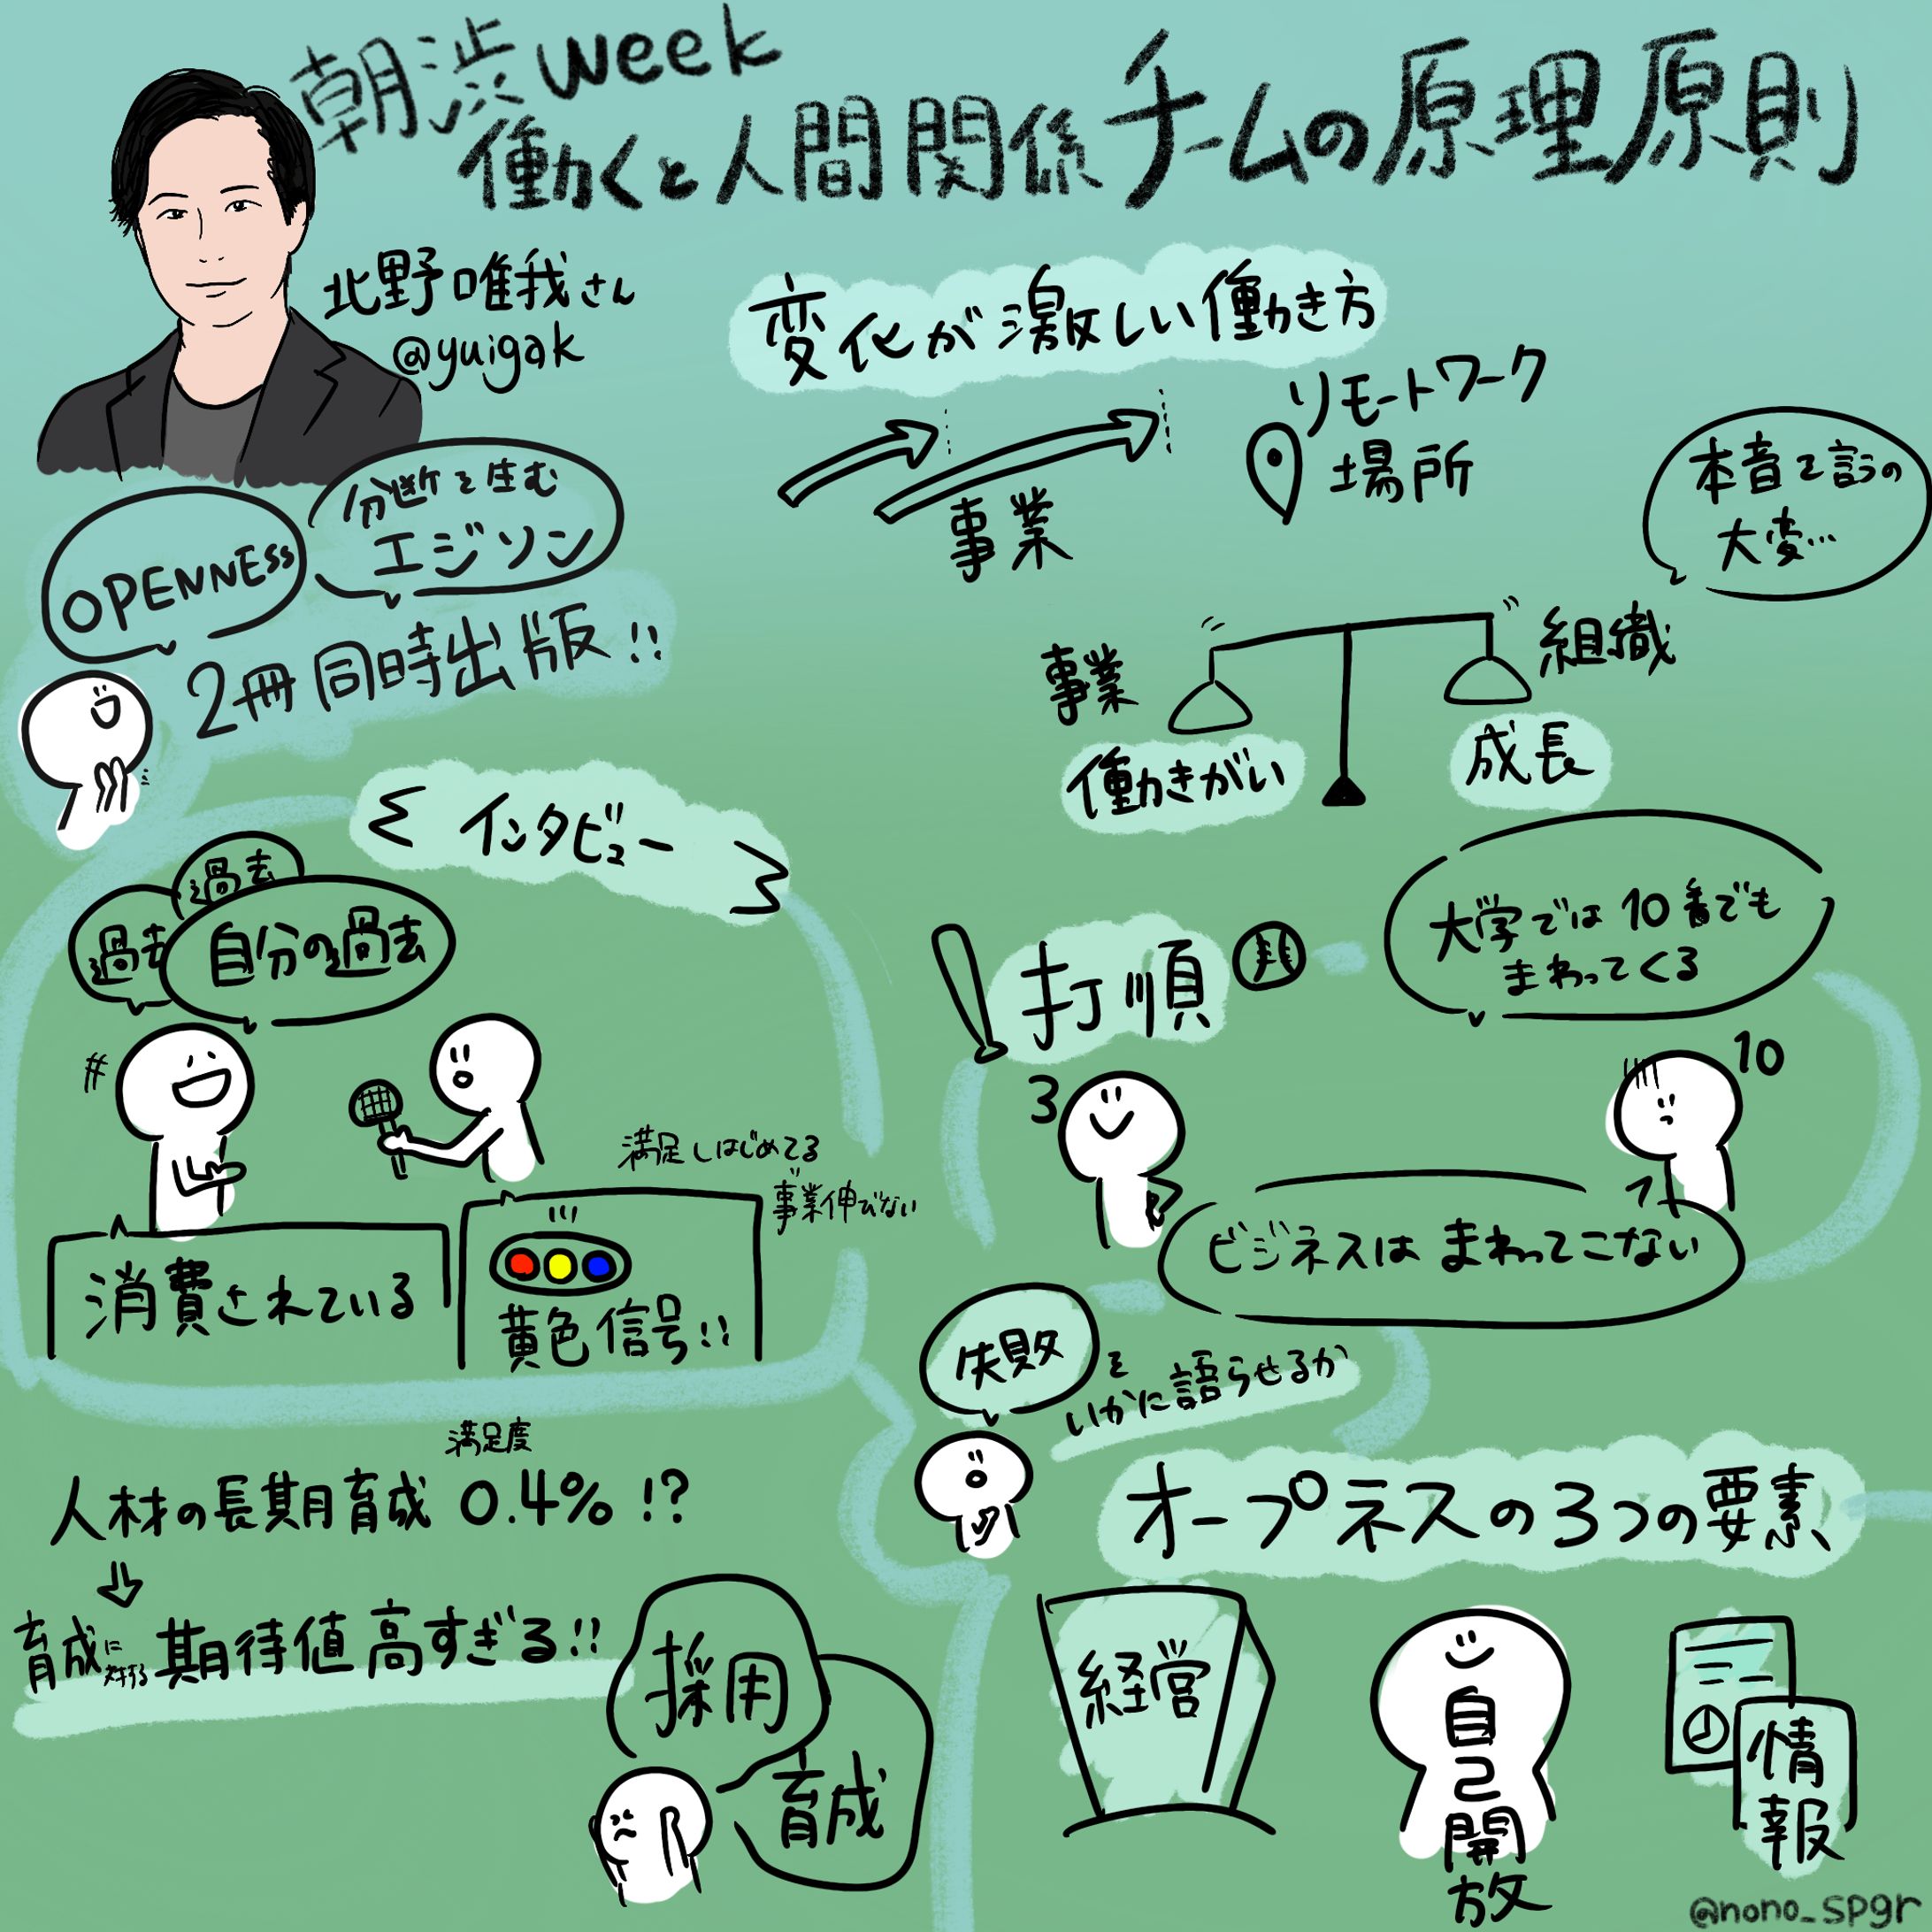 朝渋week
働くと人間関係 チームの原理原則
北野唯我さん
@yuigak
OPENNESS
分断を生む
エジソン
2冊同時出版!!
変化が激しい働き方
事業
リモートワーク
場所
本音を言うの
大変…
事業
組織
働きがい
成長
インタビュー
過去
過去
自分の過去
消費されている
満足しはじめてる
事業伸びない
黄色信号!!
打順
大学では10番でも
まわってくる
3
10
ビジネスはまわってこない
失敗を
いかに語らせるか
満足度
人材の長期育成 0.4% !?
育成に対する期待値高すぎる!!
採用
育成
オープネスの3つの要素
経営
自己開放
情報
@nono_spgr